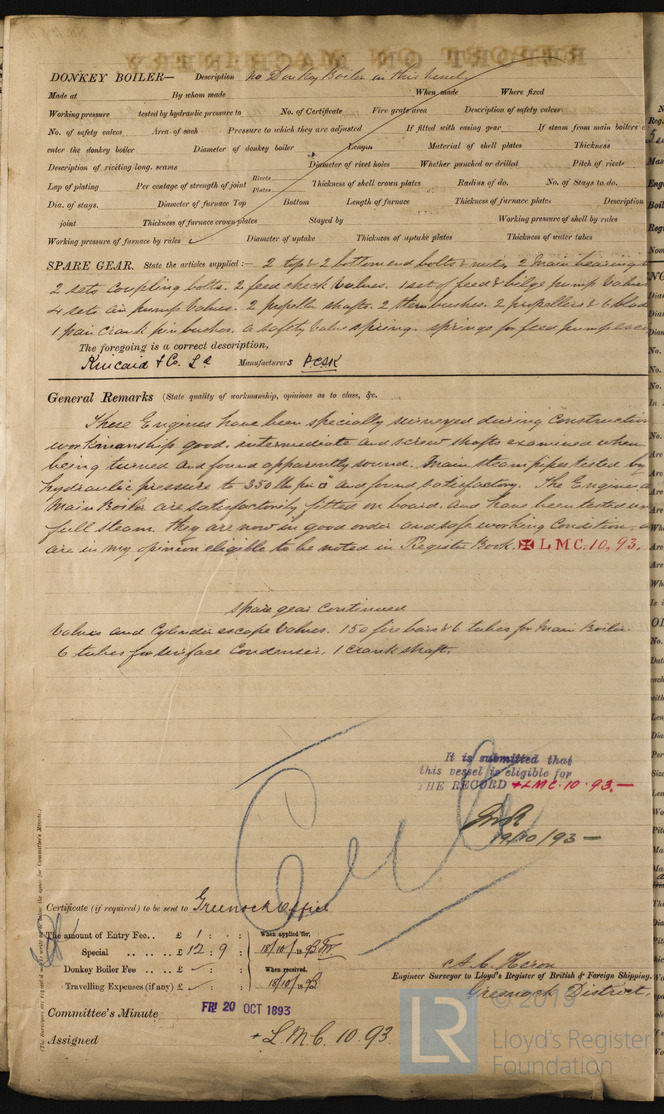 DONKEY BOILER— Description No Donkey Boiler in this vessel
Made at By whom made When made Where fixed
Working pressure tested by hydraulic pressure to No. of Certificate Fire grate area Description of safety valves
No. of safety valves Area of each Pressure to which they are adjusted If fitted with easing gear If steam from main boilers
enter the donkey boiler Diameter of donkey boiler Length Material of shell plates Thickness
Description of riveting long. seams Diameter of rivet holes Whether punched or drilled Pitch of rivets
Lap of plating Per centage of strength of joint Rivets Plates Thickness of shell crown plates Radius of do. No. of Stays to do.
Dia. of stays. Diameter of furnace Top Bottom Length of furnace Thickness of furnace plates Description
joint Thickness of furnace crown plates Stayed by Working pressure of shell by rules
Working pressure of furnace by rules Diameter of uptake Thickness of uptake plates Thickness of water tubes
SPARE GEAR. State the articles supplied:— 2 top & 2 bottom end bolts & nuts, 2 main bearing
2 sets coupling bolts. 2 feed check valves. 1 set of feed & bilge pump valves
4 sets air pump valves. 2 propeller shafts. 2 stern bushes. 2 propellers & 6 blades
1 pair crank pin bushes. a safety valve spring. springs for feed pump escape
The foregoing is a correct description,
Kincaid & Co. Ld Manufacturers
General Remarks (State quality of workmanship, opinions as to class, &c.
These Engines have been specially surveyed during construction
workmanship good. intermediate and screw shafts examined when
being turned and found apparently sound. Main steam pipes tested by
hydraulic pressure to 350 lbs per □" and found satisfactory. The Engines &
Main Boiler are satisfactorily fitted on board. and have been tested under
full steam. They are now in good order and safe working condition, &
are in my opinion eligible to be noted in Register Book. ✠ L M C. 10, 93.
Spare gear continued
Valves and Cylinder escape Valves. 150 fire bars & 6 tubes for Main Boiler.
6 tubes for surface Condenser. 1 Crank shaft.
It is submitted that
this vessel is eligible for
THE RECORD + LMC. 10. 93.—
19/10/93 —
Certificate (if required) to be sent to Greenock Office
The amount of Entry Fee.. £ 1 : : When applied for,
Special .. .. .. £ 12 . 9 : 18/10/1893
Donkey Boiler Fee .. .. £ — : : When received,
Travelling Expenses (if any) £ — : : 18/10/1893
A. C. Heron
Engineer Surveyor to Lloyd's Register of British & Foreign Shipping.
Greenock District.
Committee's Minute FRI 20 OCT 1893
Assigned + L.M.C. 10. 93.
© 2019
LR
Lloyd's Register
Foundation